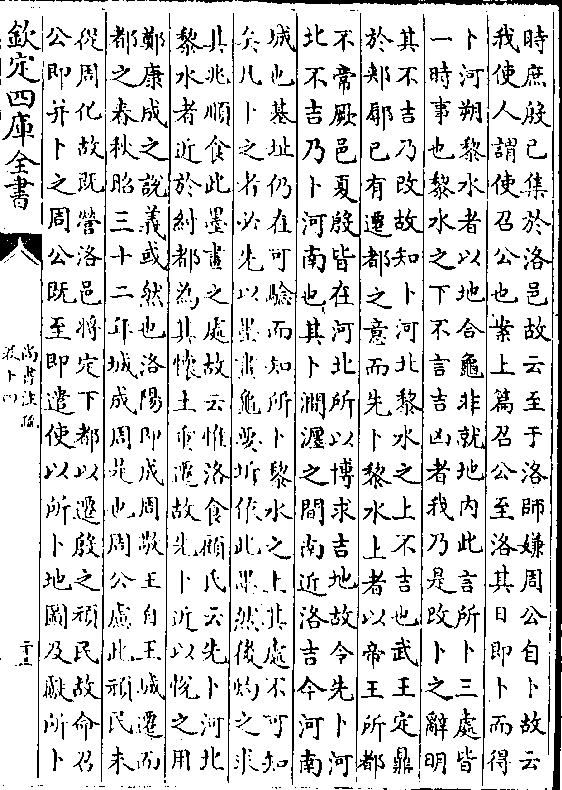 時庶殷已集於洛邑故云至于洛師嫌周公自卜故云
我使人謂使召公也案上篇召公至洛其日即卜而得
卜河朔黎水者以地合龜非就地内此言所卜三處皆
一時事也黎水之下不言吉凶者我乃是改卜之辭明
其不吉乃改故知卜河北黎水之上不吉也武王定鼎
於郟鄏已有遷都之意而先卜黎水上者以帝王所都
不常厥邑夏殷皆在河北所以博求吉地故令先卜河
北不吉乃卜河南也其卜澗瀍之間南近洛吉今河南
城也基址仍在可驗而知所卜黎水之上其處不可知
矣凡卜之者必先以墨畫龜要坼依此墨然後灼之求
其兆順食此墨畫之處故云惟洛食顧氏云先卜河北
黎水者近於紂都為其懷土重遷故先卜近以悦之用
鄭康成之說義或然也洛陽即成周敬王自王城遷而
都之春秋昭三十二年城成周是也周公慮此頑民未
從周化故既營洛邑將定下都以遷殷之頑民故命召
公即并卜之周公既至即遣使以所卜地圖及獻所卜
欽定四庫全書
尚書注疏
卷十四
二十三